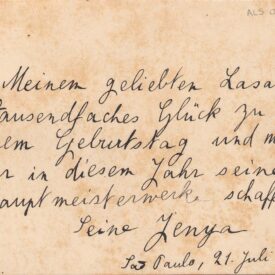 ALS
Meinem geliebten Lasa
tausendfaches Glück zu
em Geburtstag und m
r in diesem Jahr seine
auptmeisterwerk schaff
Seine Jenya
Sao Paulo, 21. Juli